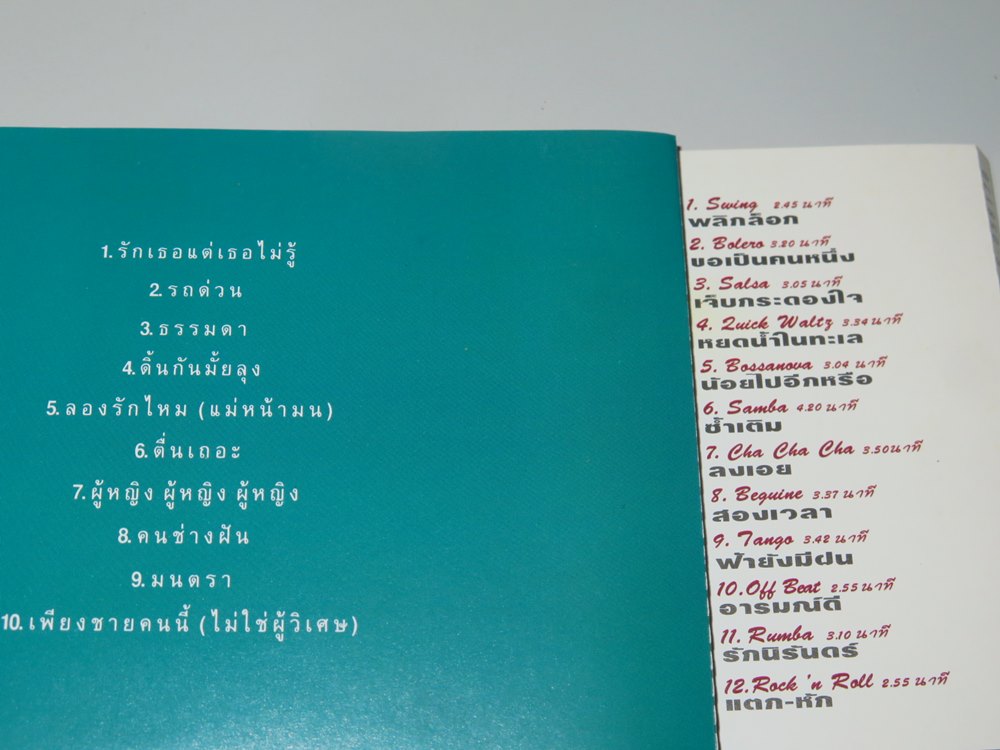 1. รักเธอแต่เธอไม่รู้
2. รถด่วน
3. ธรรมดา
4. ดิ้นกันมั้ยลุง
5. ลองรักไหม (แม่หน้ามน)
6. ตื่นเถอะ
7. ผู้หญิง ผู้หญิง ผู้หญิง
8. คนช่างฝัน
9. มนตรา
10. เพียงชายคนนี้ (ไม่ใช่ผู้วิเศษ)
1. Swing 2.45 นาที
พลิกล็อก
2. Bolero 3.20 นาที
ขอเป็นคนหนึ่ง
3. Salsa 3.05 นาที
เจ็บกระดองใจ
4. Quick Waltz 3.34 นาที
หยดน้ำในทะเล
5. Bossanova 3.04 นาที
น้อยไปอีกหรือ
6. Samba 4.20 นาที
ซ้ำเติม
7. Cha Cha Cha 3.50 นาที
ลงเอย
8. Beguine 3.37 นาที
สองเวลา
9. Tango 3.42 นาที
ฟ้ายังมีฝน
10. Off Beat 2.55 นาที
อารมณ์ดี
11. Rumba 3.10 นาที
รักนิรันดร์
12. Rock 'n Roll 2.55 นาที
แตก-หัก